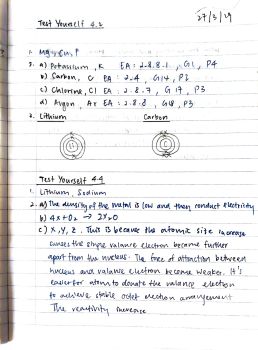 27/3/19
Test Yourself 4.2
1. Mg, Cu, P
2. a) Potassium, K EA: 2.8.8.1, G1, P4
b) Carbon, C EA: 2.4, G14, P2
c) Chlorine, Cl EA: 2.8.7, G17, P3
d) Argon, Ar EA: 2.8.8, G18, P3
3. Lithium Carbon
Li C
Test Yourself 4.4
1. Lithium, Sodium
2. a) The density of the metal is low and they conduct electricity
b) 4X + O2 → 2X2O
c) X, Y, Z. This is because the atomic size increase
causes the single valance electron become further
apart from the nucleus. The force of attraction between
nucleus and valance electron become weaker. It's
easier for atom to donate the valance electron
to achieve stable octet electron arrangement.
The reactivity increase